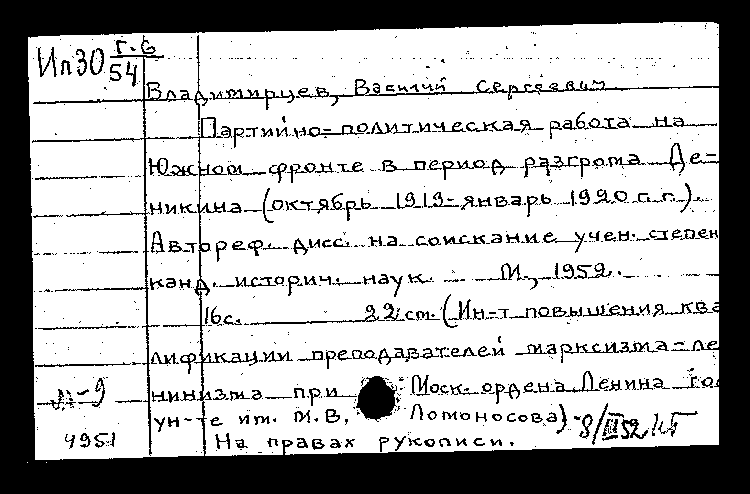 Ип30 Г.6/54
Владимирцев, Василий Сергеевич
Партийно-политическая работа на
Южном фронте в период разгрома Де-
никина (октябрь 1919-январь 1920 г.г.).
Автореф. дисс. на соискание учен. степен
канд. историч. наук. М., 1952.
16с. 22 см. (Ин-т повышения ква
лификации преподавателей марксизма-ле
нинизма при Моск. ордена Ленина гос
ун-те им. М.В. Ломоносова)
На правах рукописи.
8/III 52
4951